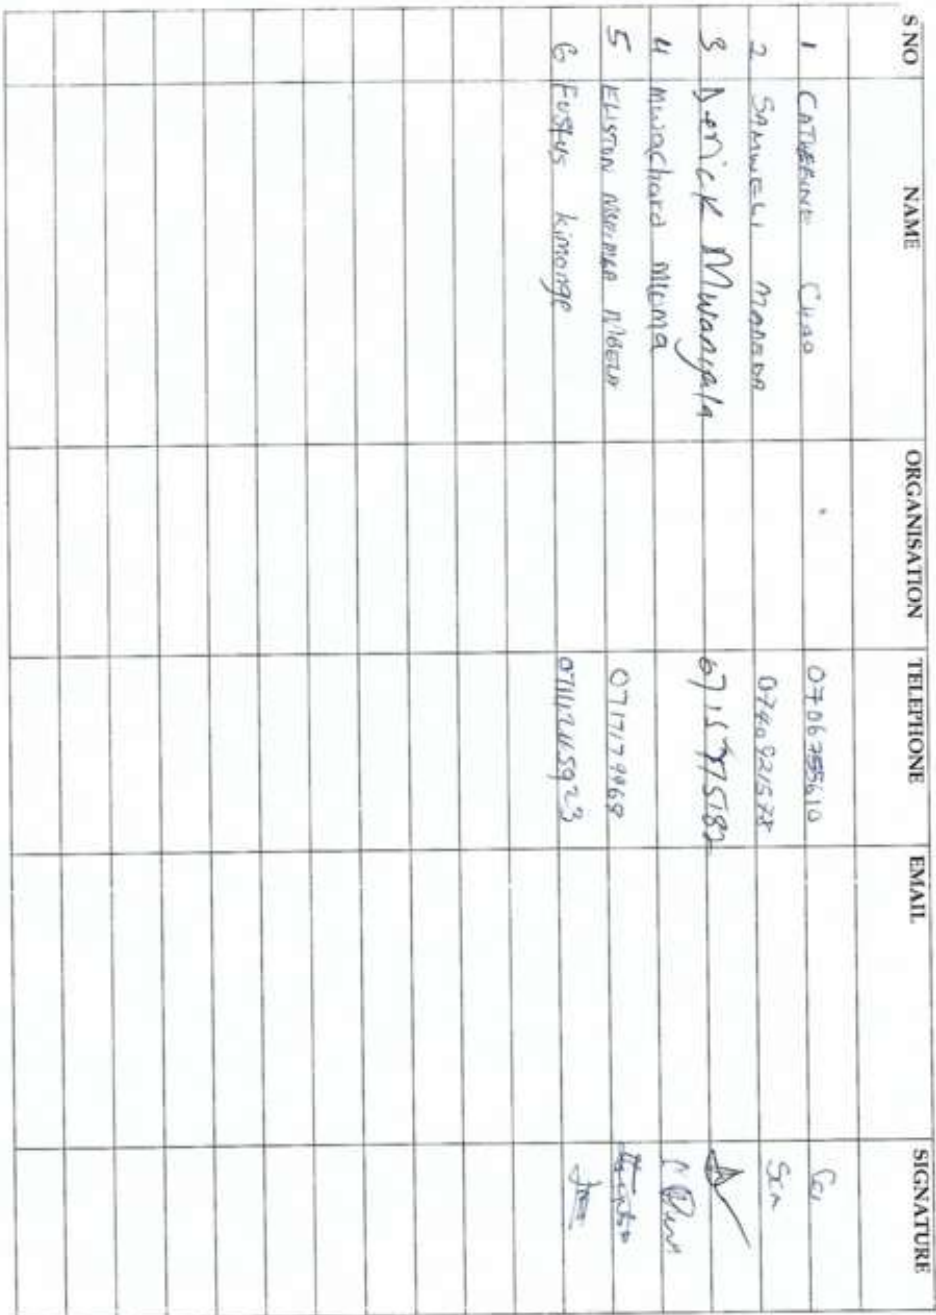 S NO NAME ORGANISATION TELEPHONE EMAIL SIGNATURE
1 CATHERINE CHAO 0706755610
2 SAMWELI MAMBOA 0740921578
3 Derrick Mwanyala 0715775182
4 Mwachard Mloma
5 ELISTON 0717179969
6 FUSTUS kimonge